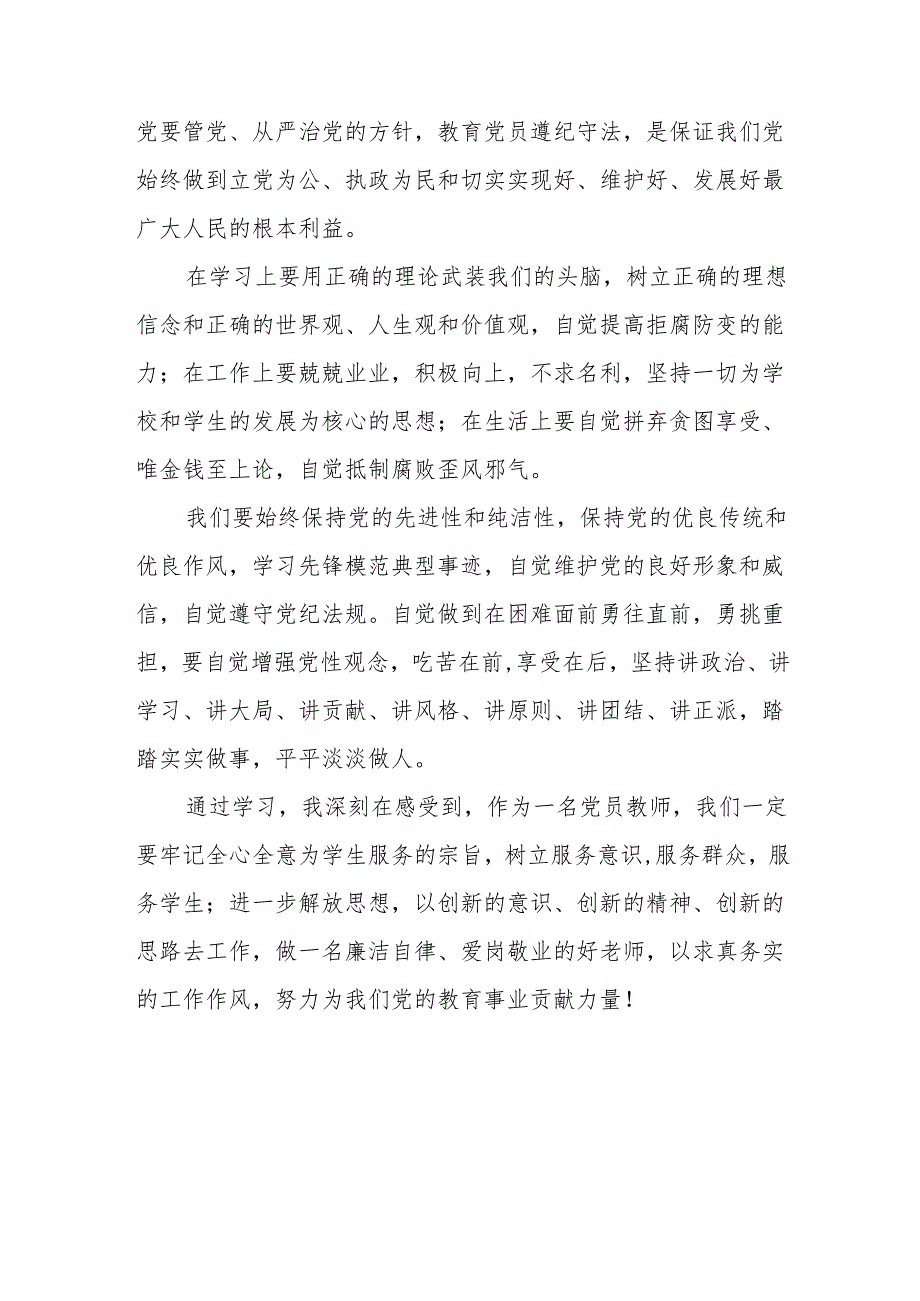 党要管党、从严治党的方针，教育党员遵纪守法，是保证我们党
始终做到立党为公、执政为民和切实实现好、维护好、发展好最
广大人民的根本利益。
在学习上要用正确的理论武装我们的头脑，树立正确的理想
信念和正确的世界观、人生观和价值观，自觉提高拒腐防变的能
力；在工作上要兢兢业业，积极向上，不求名利，坚持一切为学
校和学生的发展为核心的思想；在生活上要自觉拼弃贪图享受、
唯金钱至上论，自觉抵制腐败歪风邪气。
我们要始终保持党的先进性和纯洁性，保持党的优良传统和
优良作风，学习先锋模范典型事迹，自觉维护党的良好形象和威
信，自觉遵守党纪法规。自觉做到在困难面前勇往直前，勇挑重
担，要自觉增强党性观念，吃苦在前,享受在后，坚持讲政治、讲
学习、讲大局、讲贡献、讲风格、讲原则、讲团结、讲正派，踏
踏实实做事，平平淡淡做人。
通过学习，我深刻在感受到，作为一名党员教师，我们一定
要牢记全心全意为学生服务的宗旨，树立服务意识,服务群众，服
务学生；进一步解放思想，以创新的意识、创新的精神、创新的
思路去工作，做一名廉洁自律、爱岗敬业的好老师，以求真务实
的工作作风，努力为我们党的教育事业贡献力量！